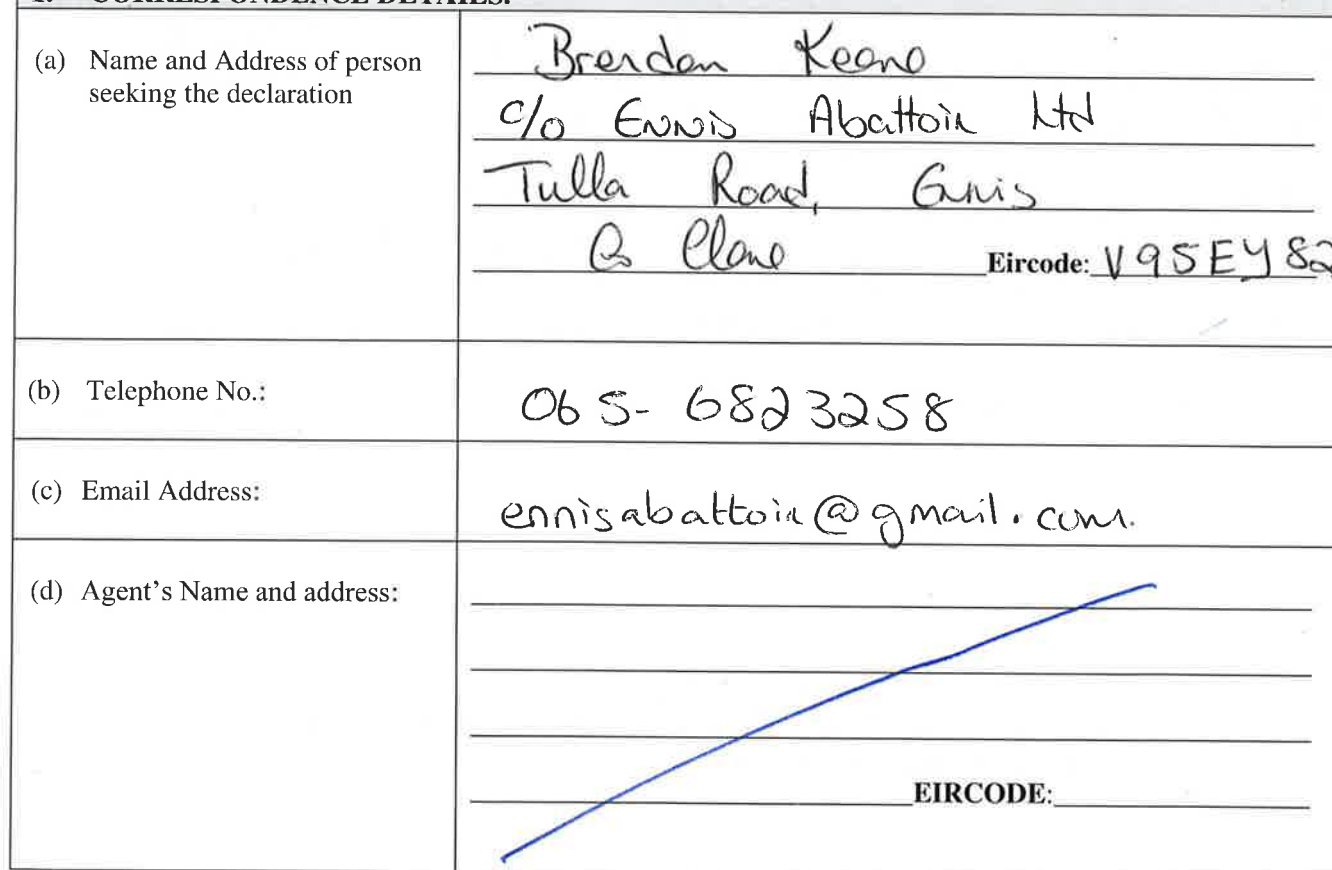 1. CORRESPONDENCE DETAILS:
(a) Name and Address of person
seeking the declaration
Brendan Keane
c/o Ennis Abattoir Ltd
Tulla Road, Ennis
Co Clare Eircode: V95EY82
(b) Telephone No.:
065-6823258
(c) Email Address:
ennisabattoir@gmail.com.
(d) Agent's Name and address:
EIRCODE: